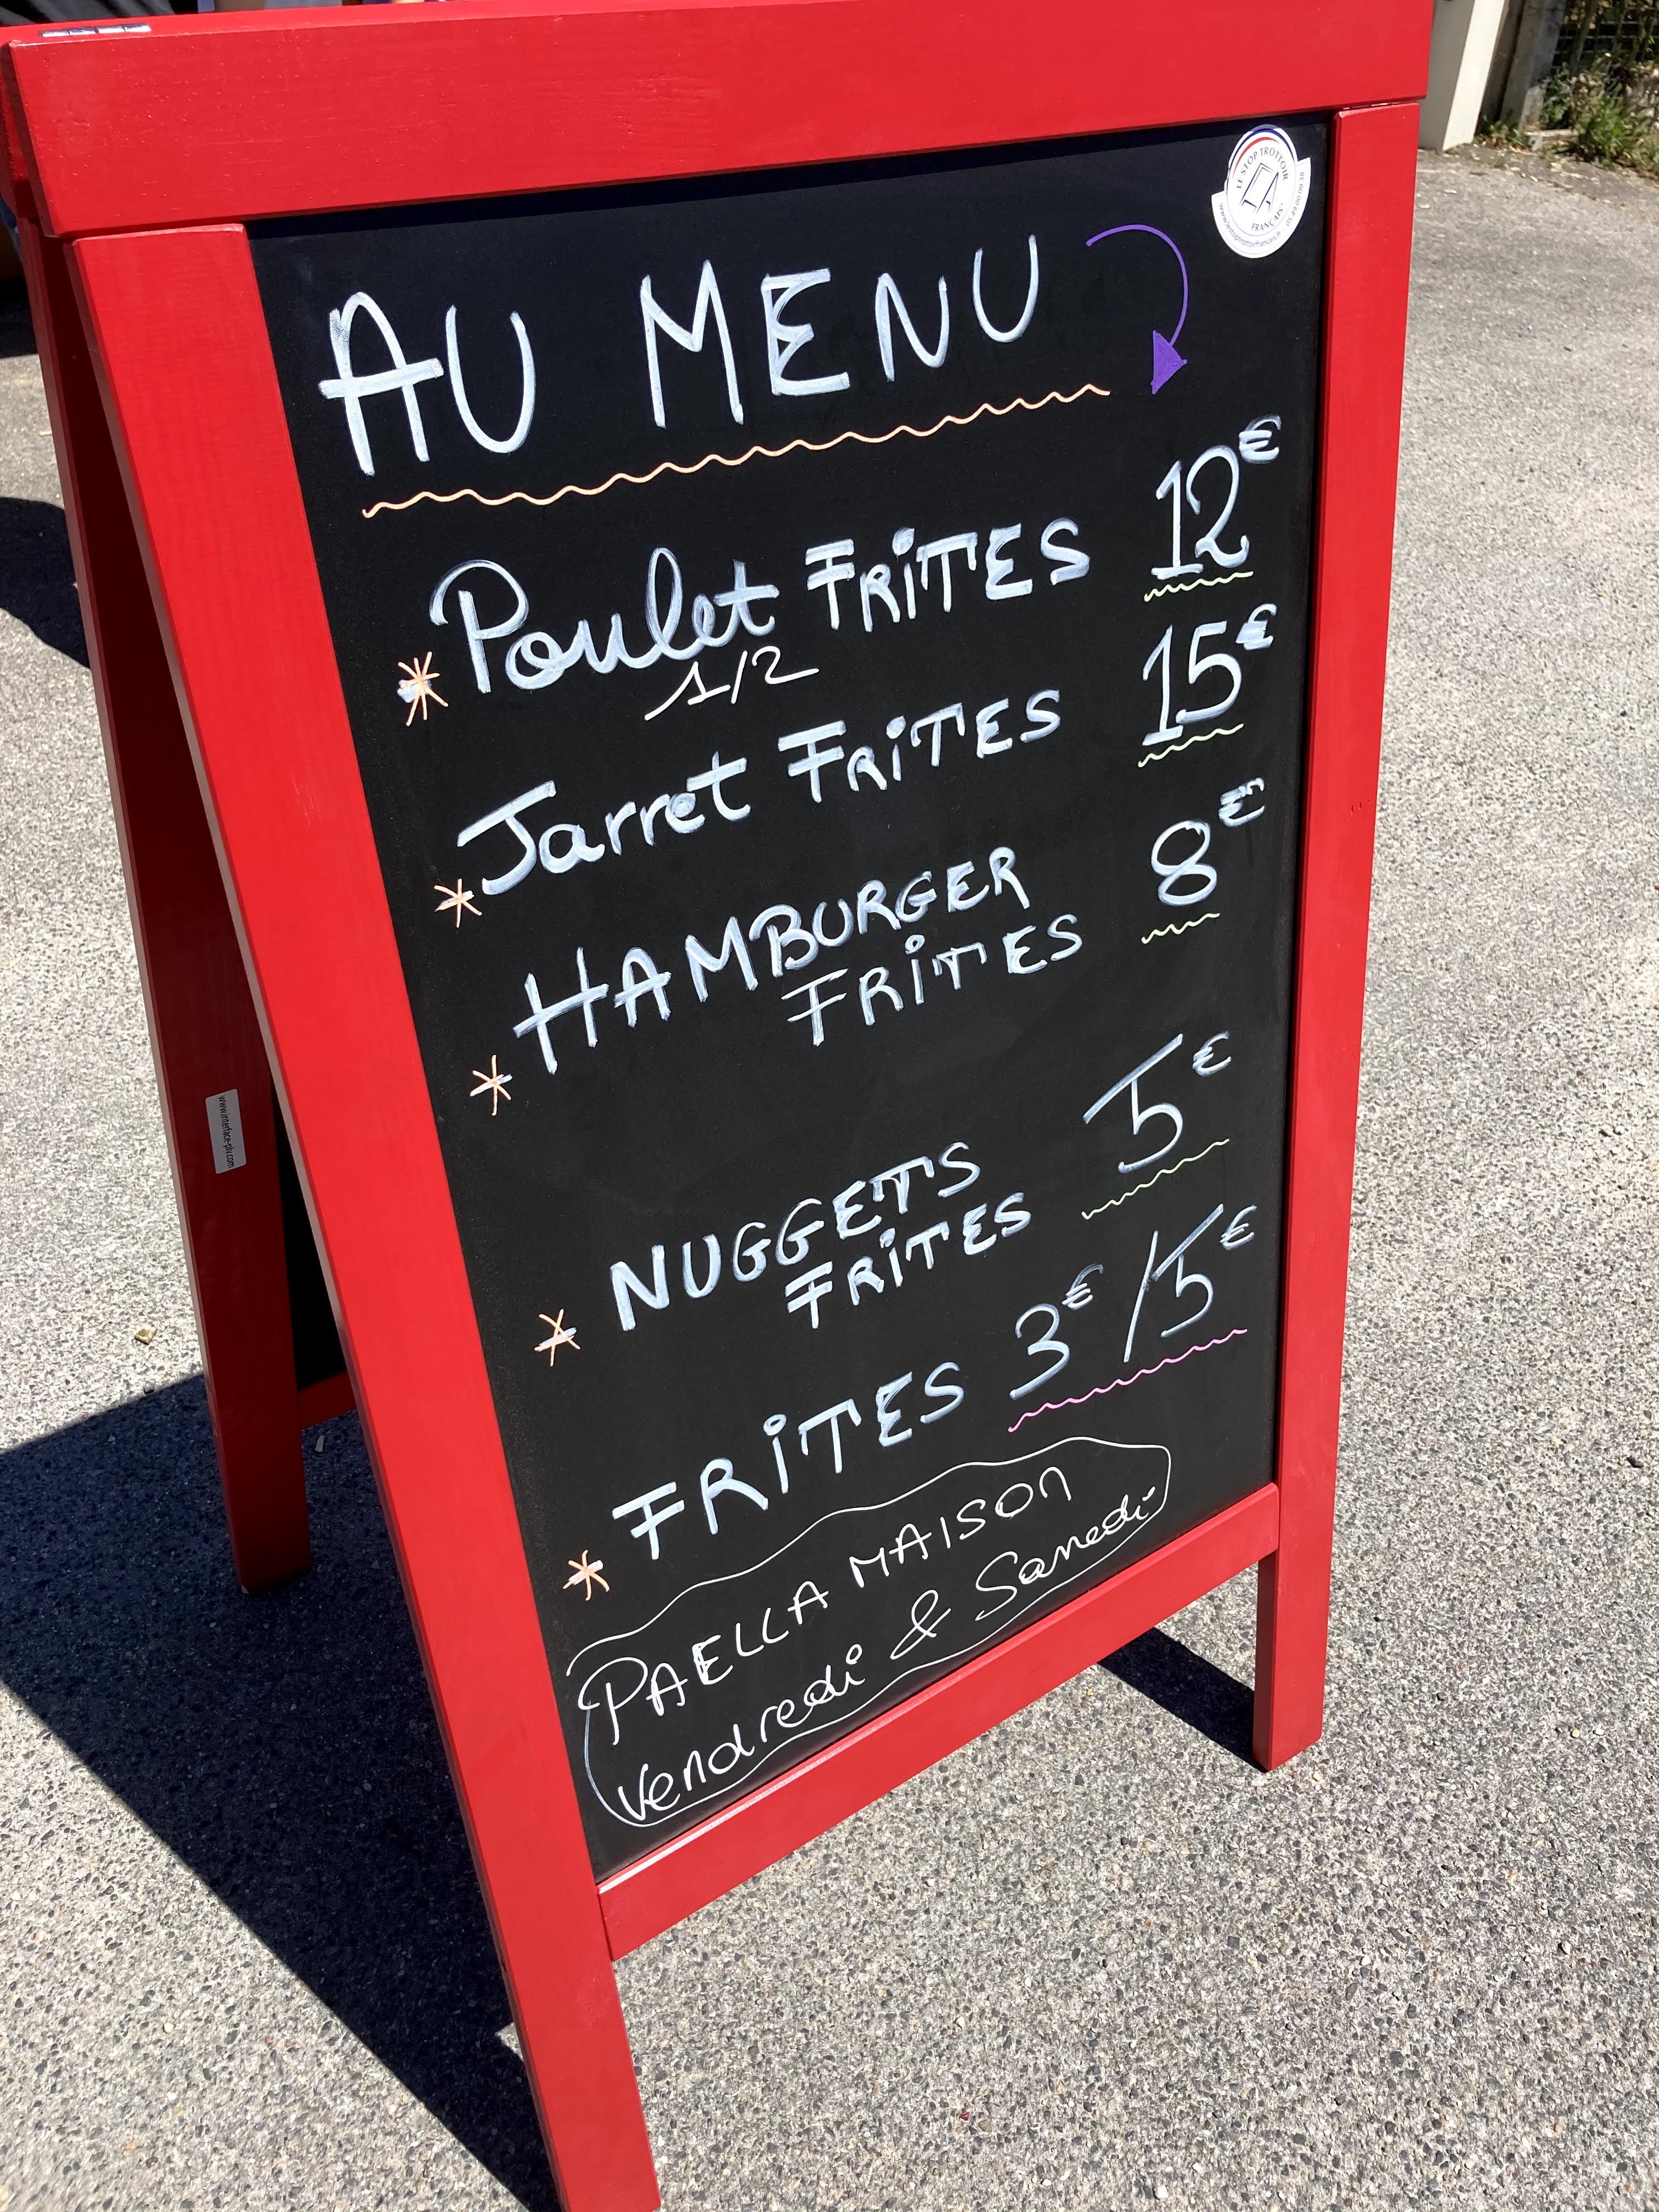 AU MENU
LE STOP TROTTOIR
FRANÇAIS
* Poulet FRITES 12€
1/2
* Jarret FRITES 15€
* HAMBURGER 8€
FRITES
* NUGGETS 5€
FRITES
* FRITES 3€/5€
PAELLA MAISON
Vendredi & Samedi
www.interface-plv.com